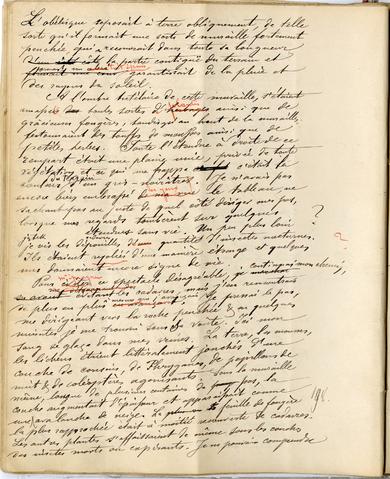 L'obélisque reposait à terre obliquement, de telle
sorte qu'il formait une sorte de muraille fortement
penchée, qui recouvrait dans toute sa longueur
la partie contiguë du terrain et
garantissait de la pluie et
des rayons du soleil.
A l'ombre tutélaire de cette muraille, s'étaient
massées une sorte d'herbages ainsi que de
gracieuses fougères tandis qu'au haut de la muraille
foisonnaient des touffes de mousses ainsi que de
petites herbes. Toute l'étendue à droite de ce
rempart était une plaine unie, privée de toute
végétation et ce qui me frappa c'était la
d'un gris-noirâtre. Je n'avais pas
encore bien embrassé du regard le tableau, ne
sachant pas au juste de quel côté diriger mes pas,
lorsque mes regards tombèrent sur quelques
sans vie. Un peu plus loin ?
je vis les dépouilles d'une quantité d'insectes nocturnes. ?
Ils étaient repliés d'une manière étrange et quelques
uns donnaient encore signe de vie.
ce spectacle désagréable, continuai mon chemin,
évitant les cadavres, mais j'en rencontrais
de plus en plus à chaque pas,
me dirigeant vers la roche penchée & en quelques
minutes je me trouvai sous sa voûte. J'ai mon
sang se glaça dans mes veines. La terre, les mousses,
les lichens étaient littéralement jonchés d'une
couche de cousins, de Phryganes, de papillons de
nuit & de coléoptères agonisants. Sous la muraille
même, longue de plusieurs dizaines de pas, la
couche augmentait d'épaisseur et apparaissait comme
une avalanche de neige. La feuille de fougère
la plus rapprochée était à moitié recouverte de cadavres.
Les autres plantes s'affaissaient de même sous les couches
des insectes morts ou expirants. Je ne pouvais comprendre
198.